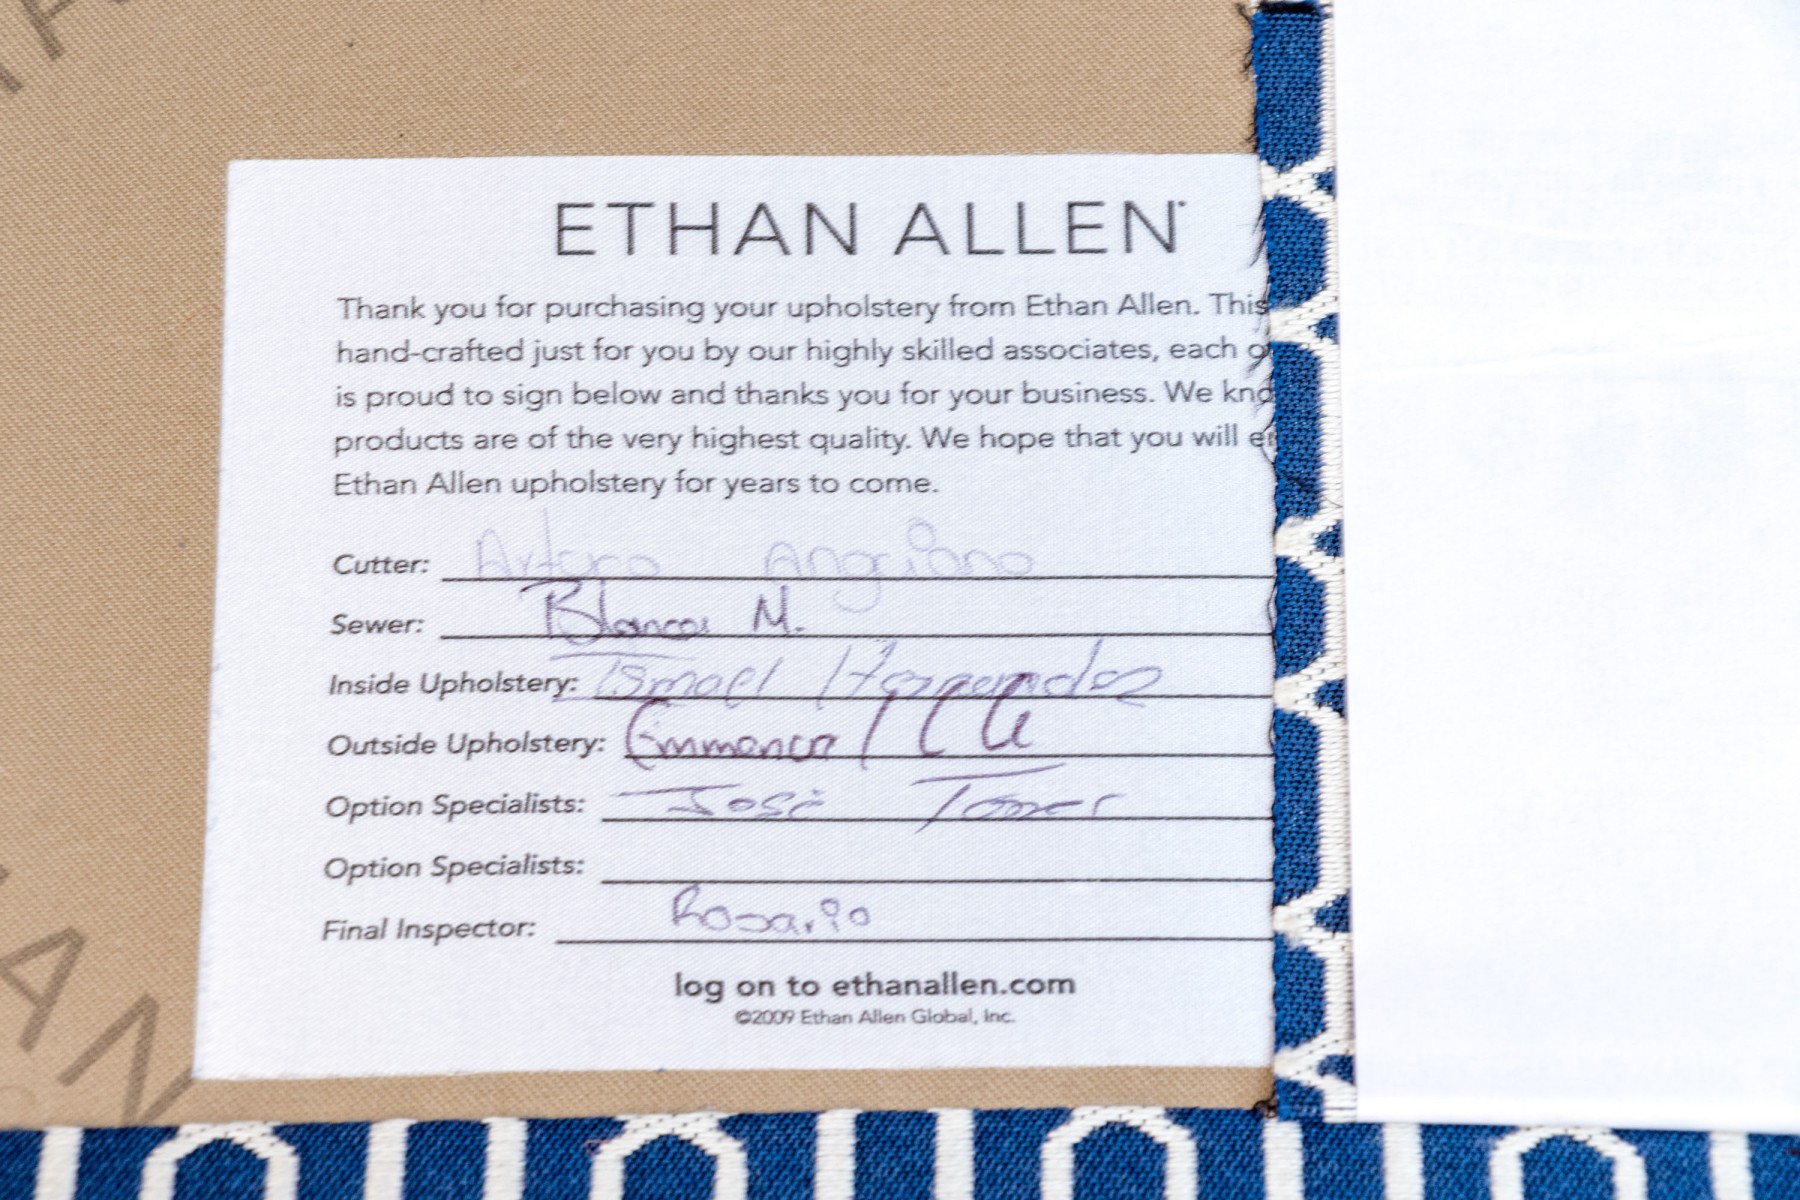 ETHAN ALLEN
Thank you for purchasing your upholstery from Ethan Allen. This
hand-crafted just for you by our highly skilled associates, each
is proud to sign below and thanks you for your business. We kno
products are of the very highest quality. We hope that you will
Ethan Allen upholstery for years to come.
Cutter: Arturo Angriano
Sewer: Blanca M.
Inside Upholstery: Ismael Hernandez
Outside Upholstery: Emmanuel
Option Specialists: José
Option Specialists:
Final Inspector: Rosario
log on to ethanallen.com
©2009 Ethan Allen Global, Inc.
AN